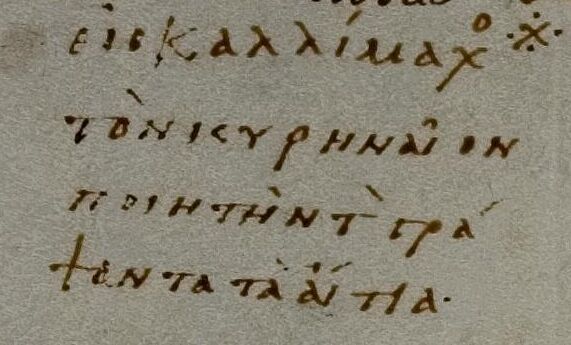 εἰς καλλίμαχο
τὸν κυρηναῖον
ποιητὴν τ̀ γρά
ψαντα τὰ αἴτια·